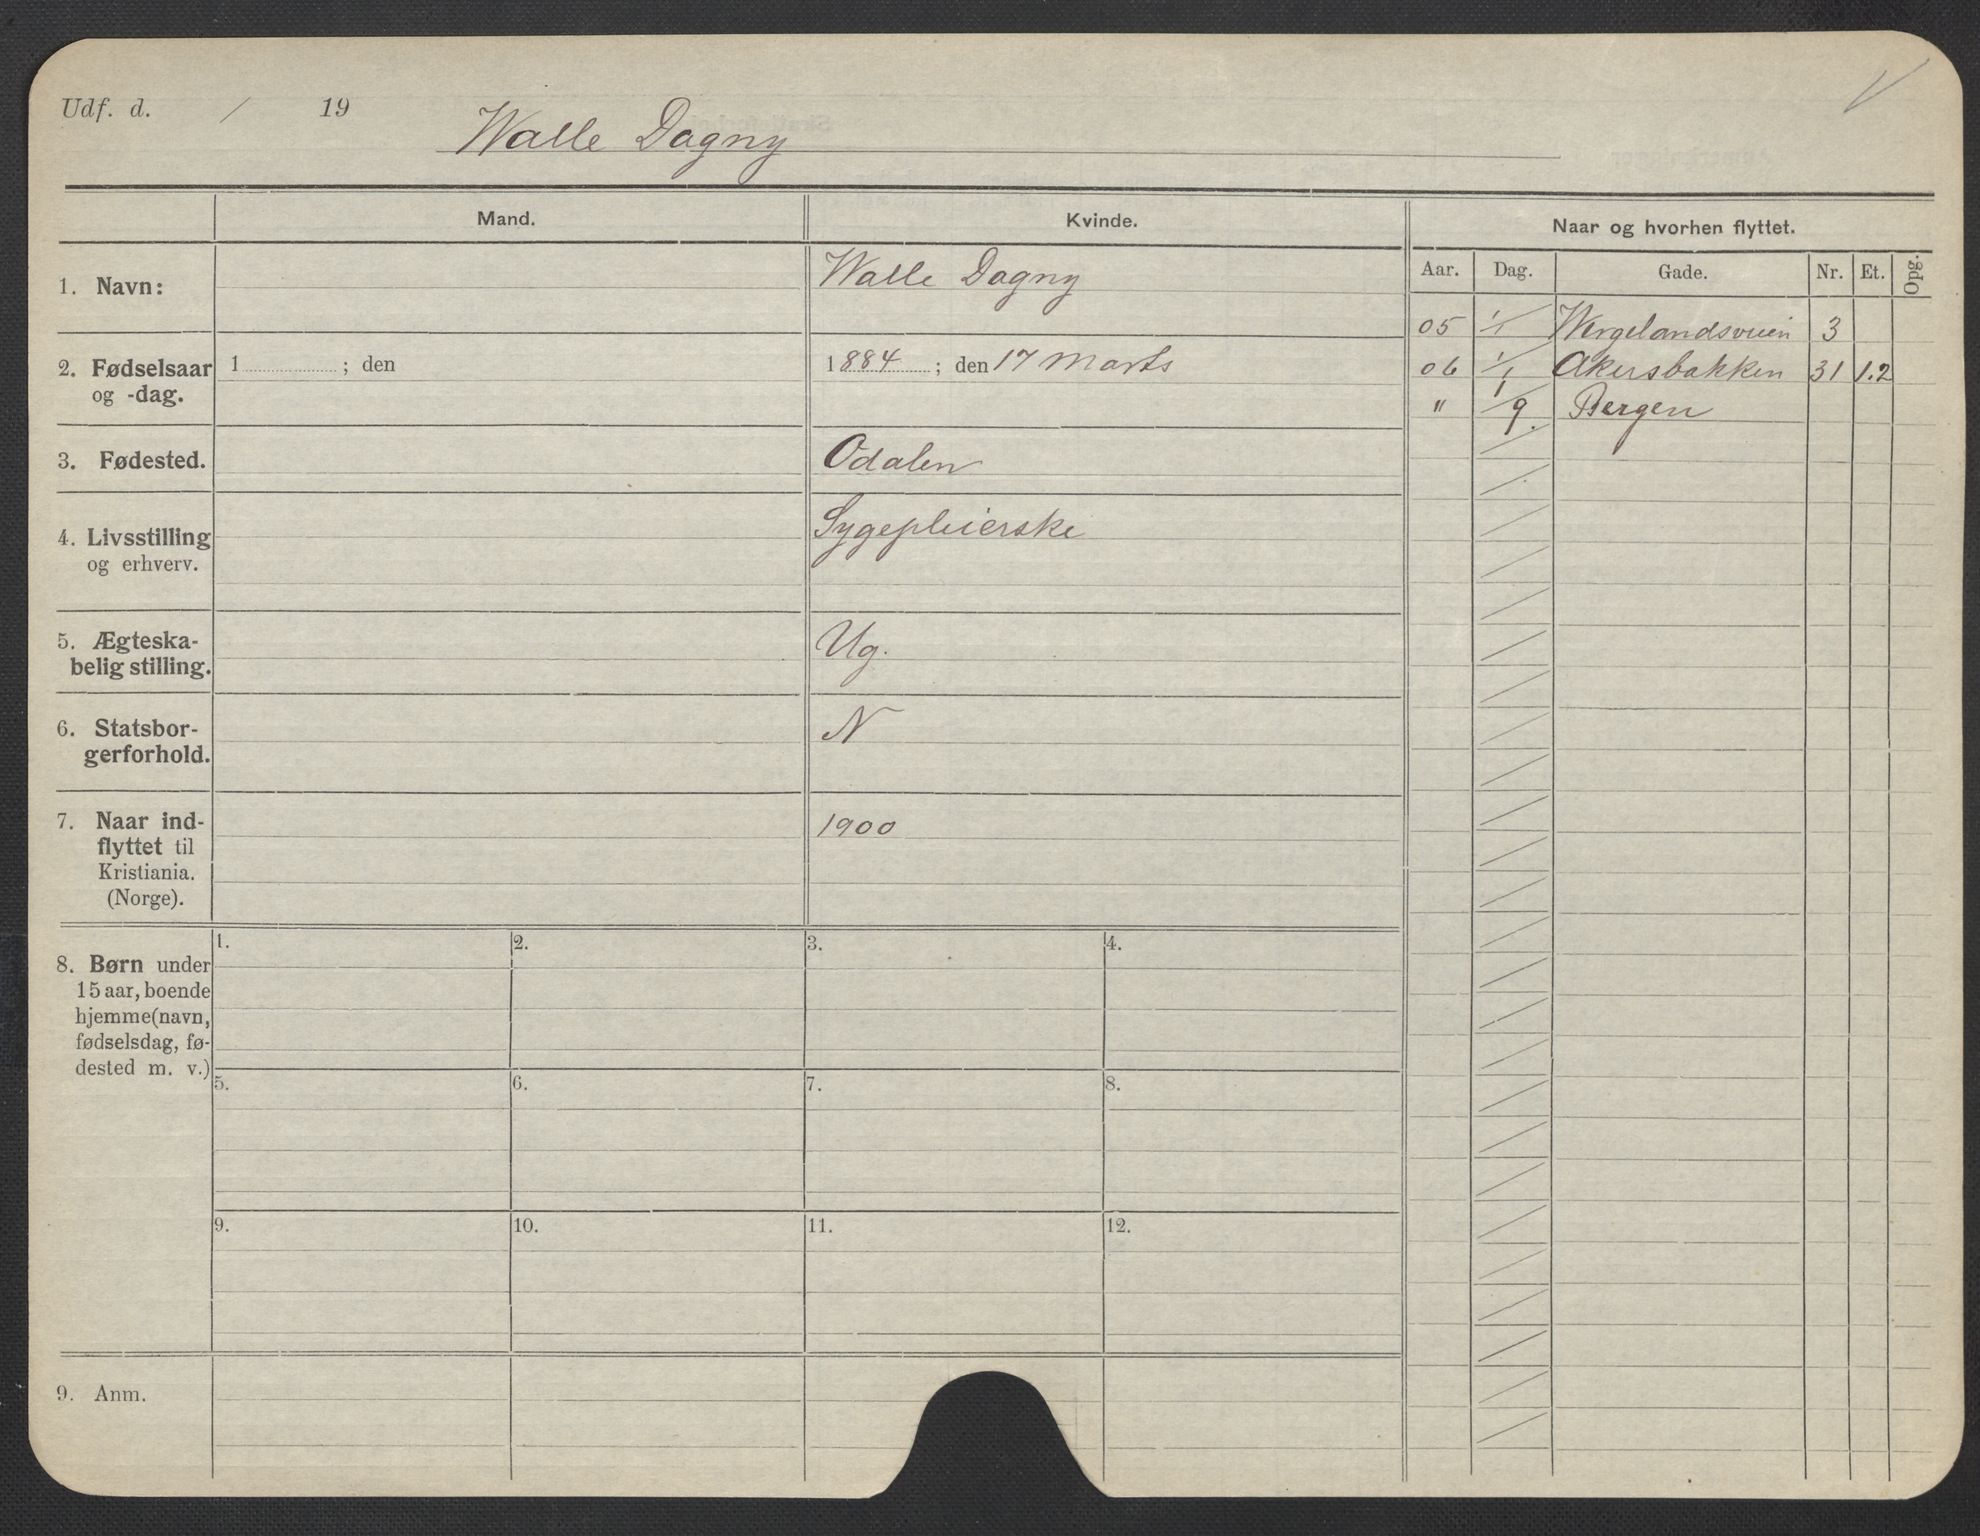 Udf. d. / 19
Walle Dagny
Mand.
Kvinde.
Naar og hvorhen flyttet.
Aar. Dag. Gade. Nr. Et. Opg.
1. Navn:
Walle Dagny
05 1/1 Wergelandsveien 3
2. Fødselsaar
og -dag.
1 ; den
1884 ; den 17 Marts
06 1/1 Akersbakken 31 1.2
" 1/9. Bergen
3. Fødested.
Odalen
4. Livsstilling
og erhverv.
Sygepleierske
5. Ægteska-
belig stilling.
Ug.
6. Statsbor-
gerforhold.
N
7. Naar ind-
flyttet til
Kristiania.
(Norge).
1900
8. Børn under
15 aar, boende
hjemme (navn,
fødselsdag, fø-
dested m. v.)
1. 2. 3. 4.
5. 6. 7. 8.
9. 10. 11. 12.
9. Anm.